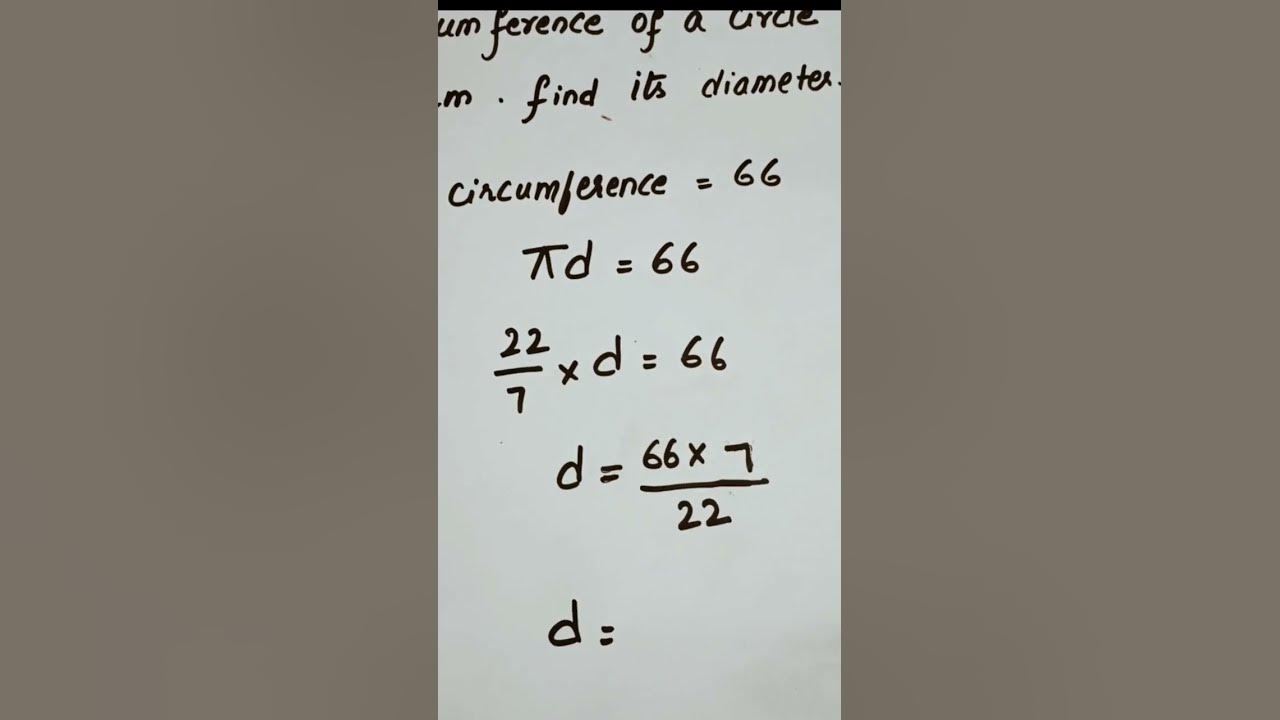 umference of a circle
.m. find its diameter.
circumference = 66
πd = 66
22/7 × d = 66
d = 66 × 7/22
d =